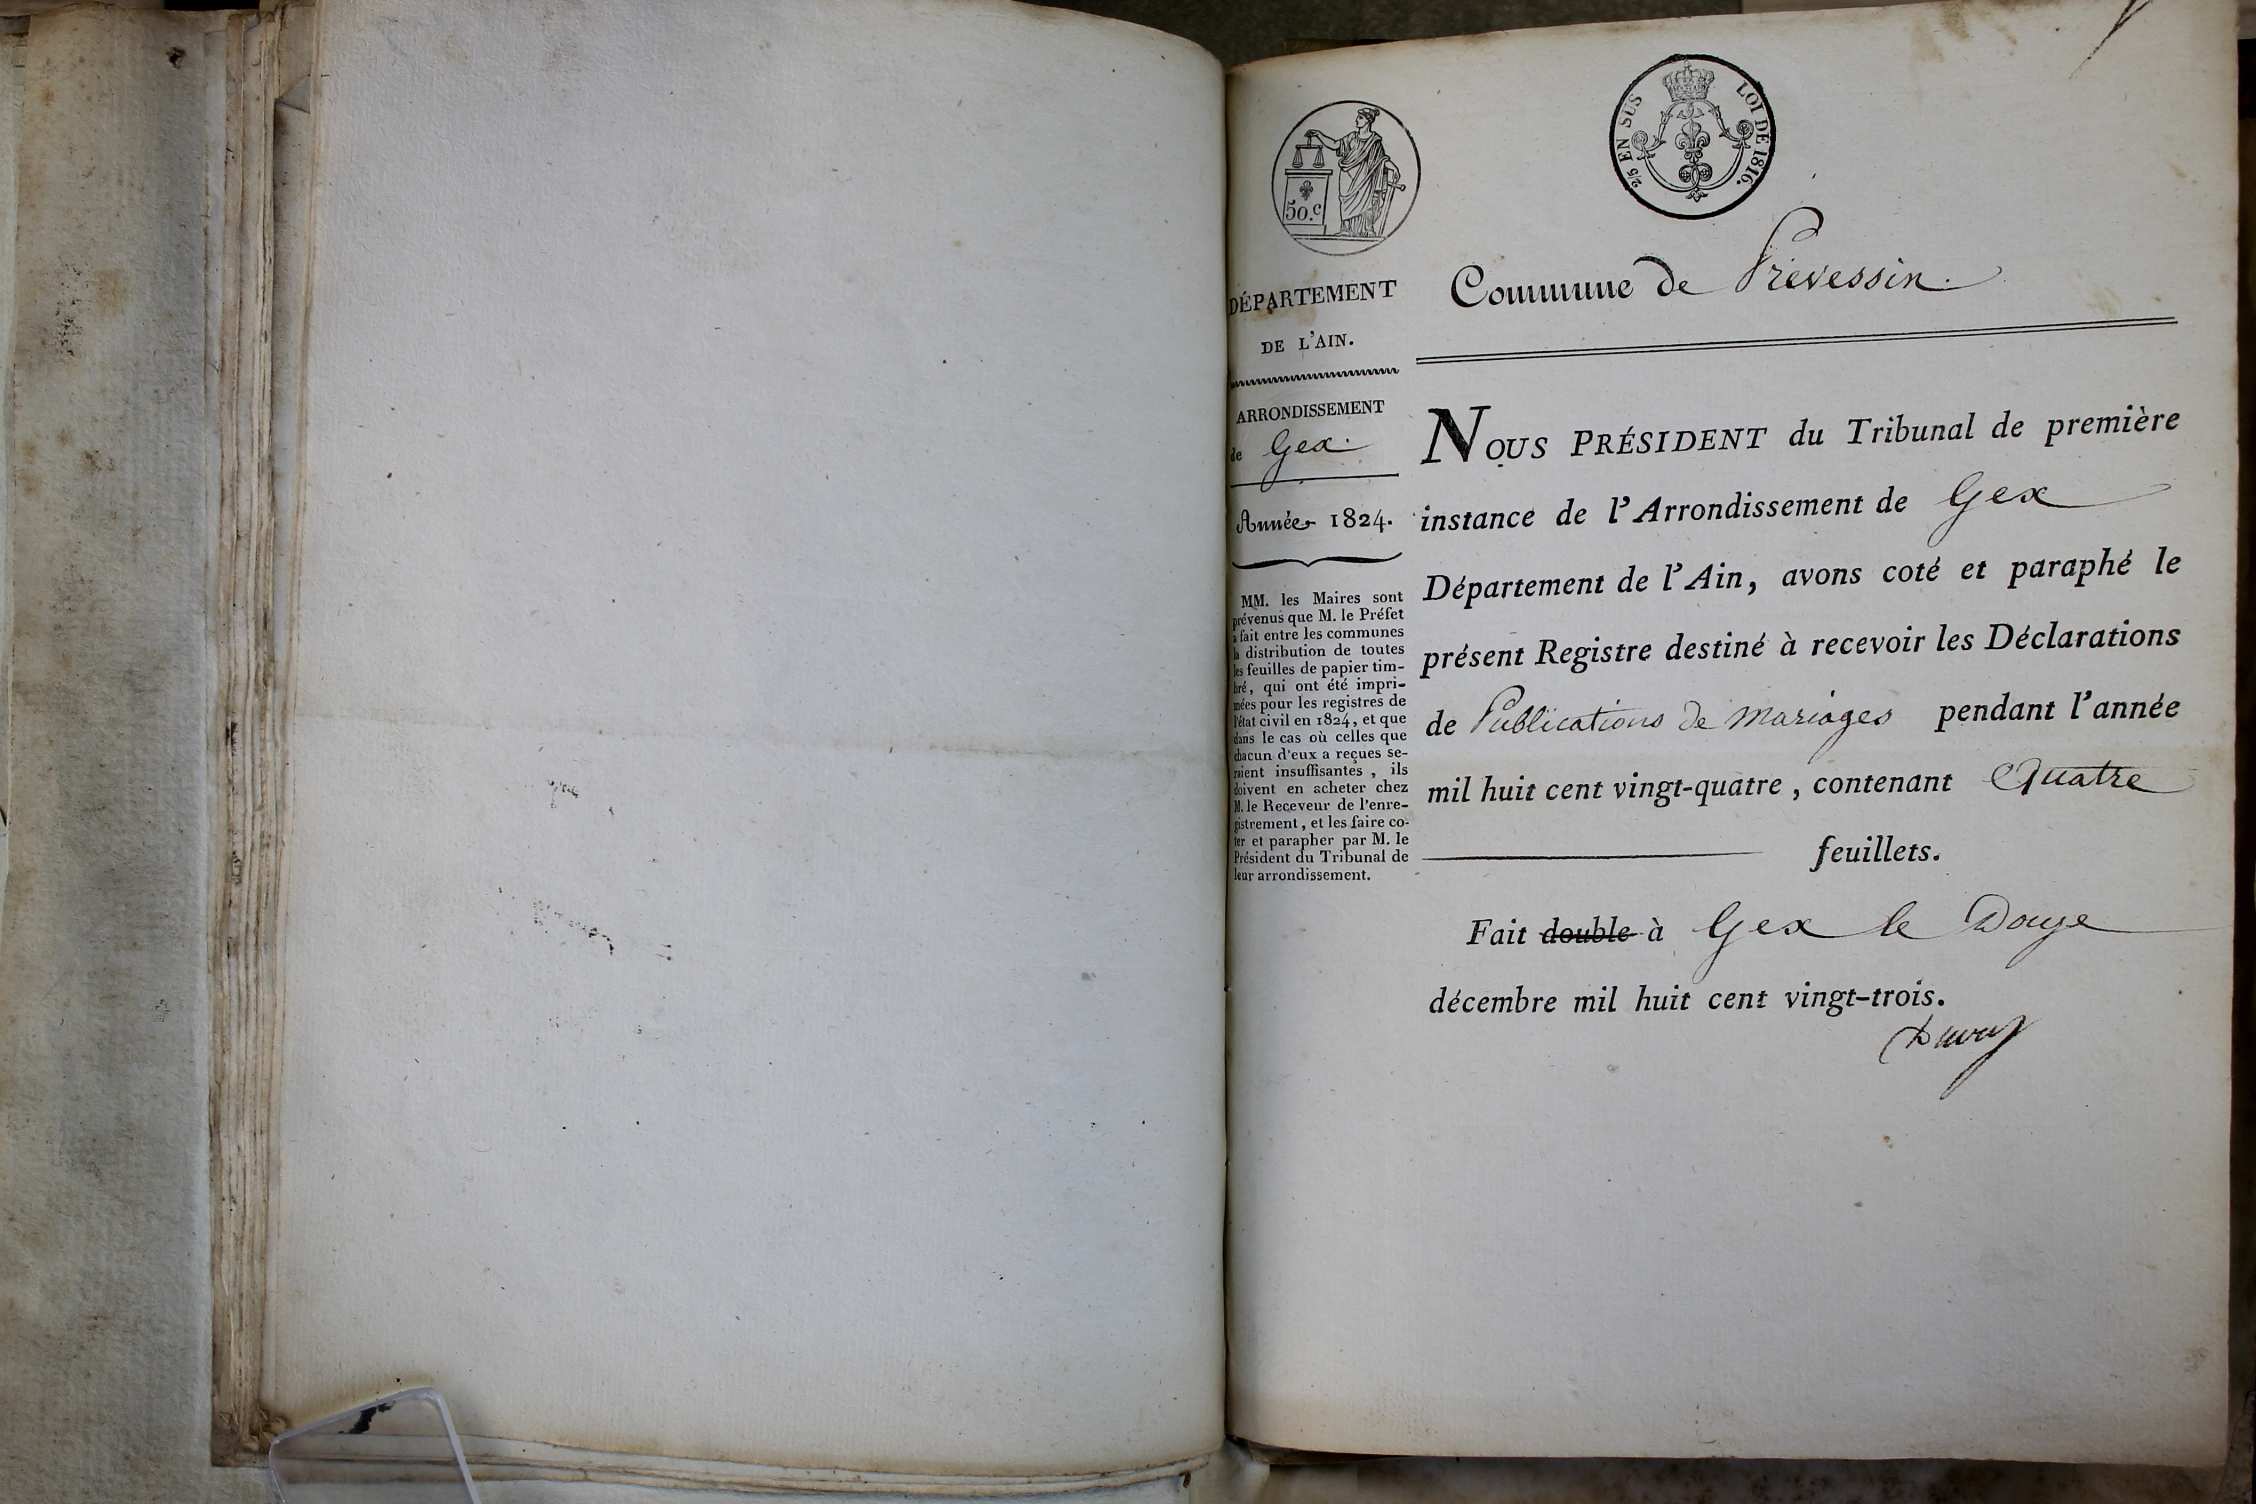 50.c
2/5 EN SUS LOI DE 1816.
DÉPARTEMENT
DE L'AIN.
ARRONDISSEMENT
de Gex.
Année 1824.
MM. les Maires sont
prévenus que M. le Préfet
a fait entre les communes
la distribution de toutes
les feuilles de papier tim-
bré, qui ont été impri-
mées pour les registres de
l'état civil en 1824, et que
dans le cas où celles que
chacun d'eux a reçues se-
raient insuffisantes, ils
doivent en acheter chez
M. le Receveur de l'enre-
gistrement, et les faire co-
ter et parapher par M. le
Président du Tribunal de
leur arrondissement.
Commune de Prevessin.
NOUS PRÉSIDENT du Tribunal de première
instance de l'Arrondissement de Gex
Département de l'Ain, avons coté et paraphé le
présent Registre destiné à recevoir les Déclarations
de Publications de Mariages pendant l'année
mil huit cent vingt-quatre, contenant Quatre
feuillets.
Fait double à Gex le Douze
décembre mil huit cent vingt-trois.